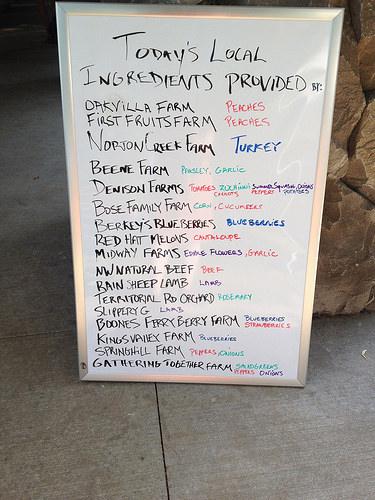 TODAY'S LOCAL
INGREDIENTS PROVIDED BY:
OAKVILLA FARM PEACHES
FIRST FRUITS FARM PEACHES
NORTON CREEK FARM TURKEY
BEENE FARM PARSLEY, GARLIC
DENISON FARMS TOMATOES ZUCHINNI SUMMER SQUASH, ONIONS
CARROTS PEPPERS POTATOES
BOSE FAMILY FARM CORN, CUCUMBERS
BERKEY'S BLUEBERRIES BLUEBERRIES
RED HAT MELONS CANTALOUPE
MIDWAY FARMS EDIBLE FLOWERS, GARLIC
NW NATURAL BEEF BEEF
RAIN SHEEP LAMB LAMB
TERRITORIAL RD ORCHARD ROSEMARY
SLIPPERY G LAMB
BOONES FERRY BERRY FARM BLUEBERRIES
STRAWBERRIES
KINGS VALLEY FARM BLUEBERRIES
SPRINGHILL FARM PEPPERS, ONIONS
GATHERING TOGETHER FARM SALAD GREENS
PEPPERS ONIONS